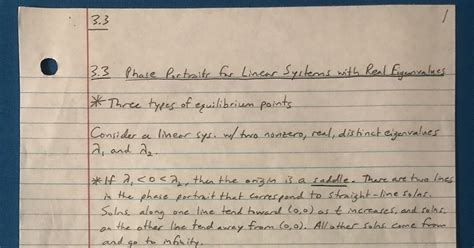 3.3
1
3.3 Phase Portraits for Linear Systems with Real Eigenvalues
* Three types of equilibrium points
Consider a linear sys. w/ two nonzero, real, distinct eigenvalues
λ₁ and λ₂.
* If λ₁ < 0 < λ₂, then the origin is a saddle. There are two lines
in the phase portrait that correspond to straight-line solns.
Solns along one line tend toward (0,0) as t increases, and solns
on the other line tend away from (0,0). All other solns come from
and go to infinity.